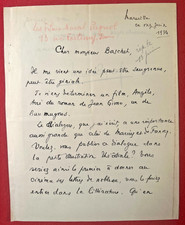 Marseille
11 Juin
1934
Cher monsieur Baschet,
Il me vient une idée peut-être saugrenue,
peut-être géniale.
Je viens de terminer un film, Angèle,
tiré du roman de Jean Giono, un de
Baumugnes.
Le dialogue, que j'ai écrit, a une importance
aussi grande que celui de Marius et de Fanny.
Voulez-vous publier ce dialogue dans
la petite Illustration théâtrale? Vous
seriez ainsi le premier à donner au
cinéma ses lettres de noblesse, vous le
entrer dans la littérature. Qu'en